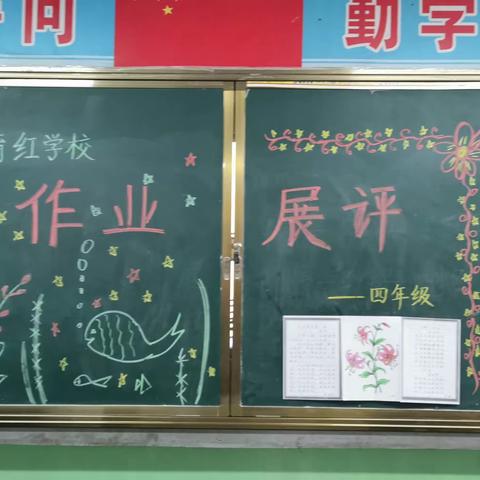 问
勤学
红学校
作业 展评
——四年级